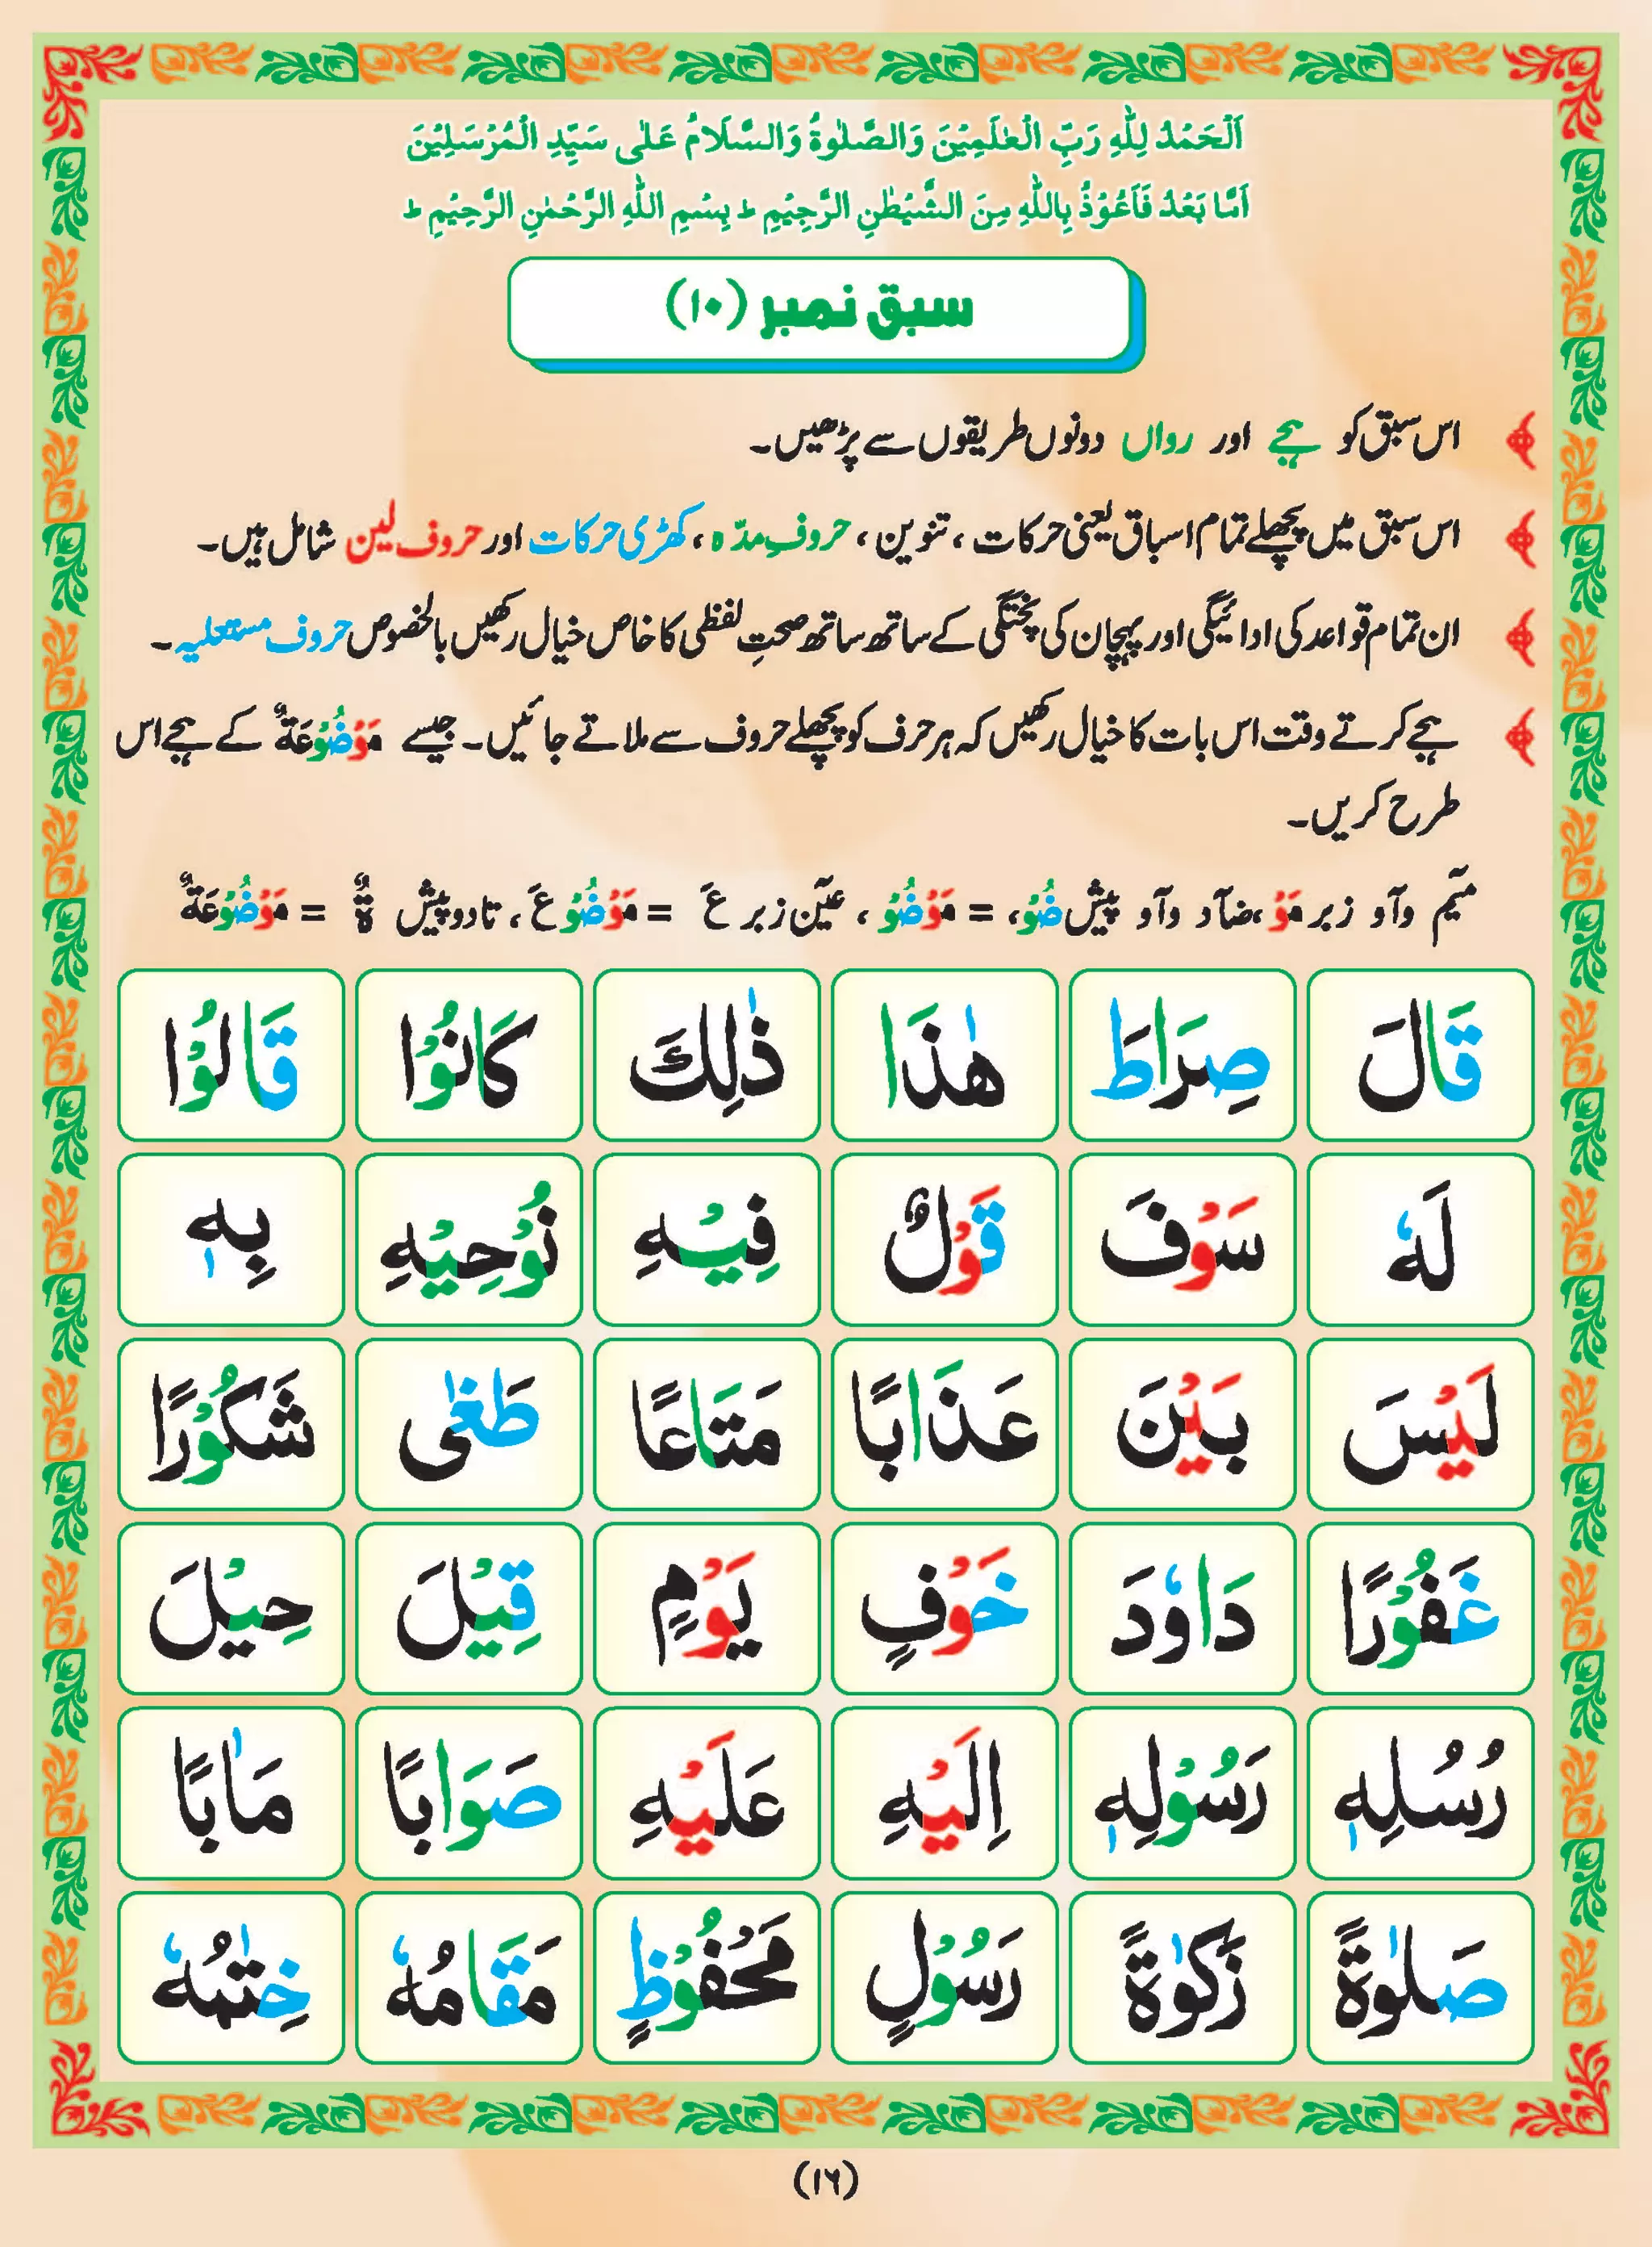 اَلْحَمْدُ لِلّٰهِ رَبِّ الْعٰلَمِیْنَ وَالصَّلٰوةُ وَالسَّلَامُ عَلٰی سَیِّدِ الْمُرْسَلِیْنَ
اَمَّا بَعْدُ فَاَعُوْذُ بِاللّٰهِ مِنَ الشَّیْطٰنِ الرَّجِیْمِ ؕ بِسْمِ اللّٰهِ الرَّحْمٰنِ الرَّحِیْمِ ؕ
سبق نمبر (۱۰)
اس سبق کو ہجے اور رواں دونوں طریقوں سے پڑھیں۔
اس سبق میں پچھلے تمام اسباق یعنی حرکات ، تنوین ، حروفِ مدّہ ، کھڑی حرکات اور حروف لین شامل ہیں۔
ان تمام قواعد کی ادائیگی اور پہچان کی پختگی کے ساتھ ساتھ صحتِ لفظی کا خاص خیال رکھیں بالخصوص حروف مستعلیہ ۔
ہجے کرتے وقت اس بات کا خیال رکھیں کہ ہر حرف کو پچھلے حروف سے ملاتے جائیں۔ جیسے مَوْضُوْعَةٌ کے ہجے اس
طرح کریں۔
مٓیم وآو زبر مَوْ ،ضآد وآو پیش ضُوْ، = مَوْضُوْ ، عٓین زبر عَ = مَوْضُوْعَ ، تا دو پیش ةٌ = مَوْضُوْعَةٌ
قَالَ صِرَاطَ هٰذَا ذٰلِكَ كَانُوْا قَالُوْا
لَهٗ سَوْفَ قَوْلٌ فِیْهِ نُوْحِیْهِ بِهٖ
لَیْسَ بَیْنَ عَذَابًا مَتَاعًا طَغٰی شَكُوْرًا
غَفُوْرًا دَاوٗدَ خَوْفٍ یَوْمٍ قِیْلَ حِیْلَ
رُسُلِهٖ رَسُوْلِهٖ اِلَیْهِ عَلَیْهِ صَوَابًا مَاٰبًا
صَلٰوةً زَكٰوةً رَسُوْلٍ مَحْفُوْظٍ مَقَامُهٗ خِتٰمُهٗ
(۱۶)